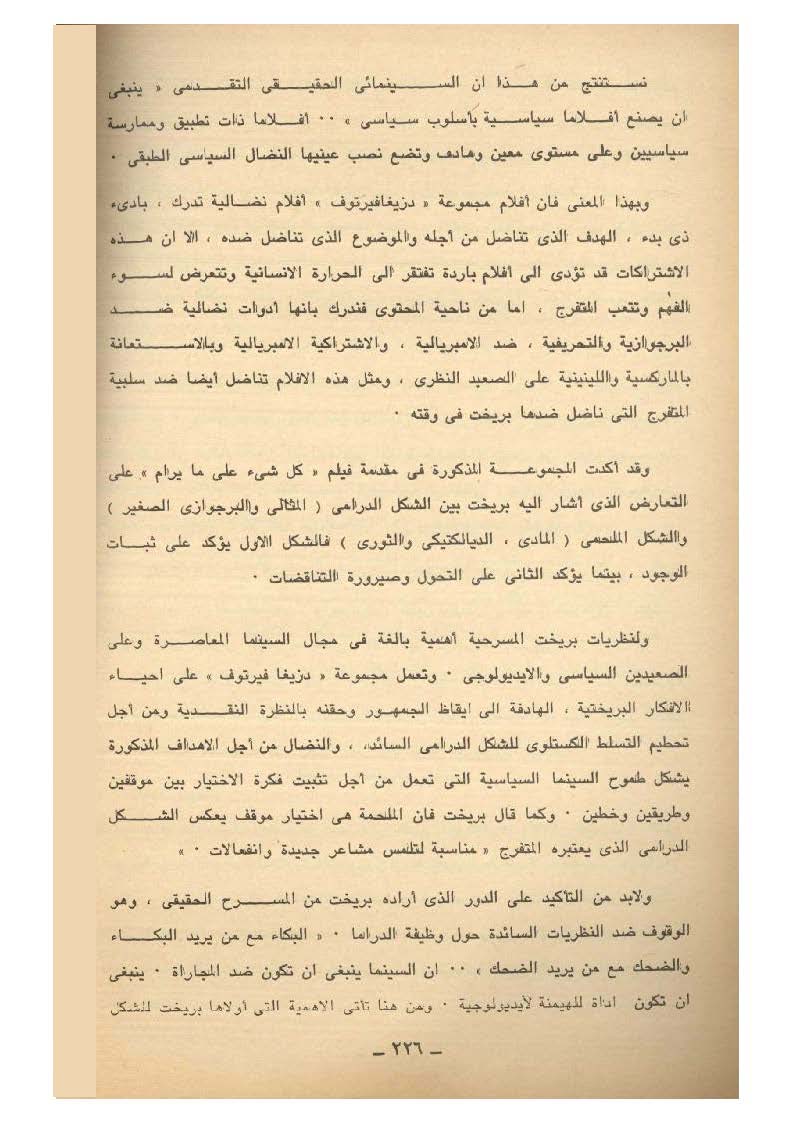 نستنتج من هذا ان السينمائى الحقيقى التقدمى « ينبغى
ان يصنع أفلاما سياسية بأسلوب سياسى » ٠٠ أفلاما ذات تطبيق وممارسة
سياسيين وعلى مستوى معين وهادف وتضع نصب عينيها النضال السياسى الطبقى ٠
وبهذا المعنى فان أفلام مجموعة « دزيغافيرتوف » أفلام نضالية تدرك ، بادىء
ذى بدء ، الهدف الذى تناضل من أجله والموضوع الذى تناضل ضده ، الا ان هذه
الاشتراكات قد تؤدى الى أفلام باردة تفتقر الى الحرارة الانسانية وتتعرض لسوء
الفهم وتتعب المتفرج ، اما من ناحية المحتوى فندرك بانها أدوات نضالية ضد
البرجوازية والتحريفية ، ضد الامبريالية ، والاشتراكية الامبريالية وبالاستعانة
بالماركسية واللينينية على الصعيد النظرى ، ومثل هذه الافلام تناضل أيضا ضد سلبية
المتفرج التى ناضل ضدها بريخت فى وقته ٠
وقد أكدت المجموعة المذكورة فى مقدمة فيلم « كل شىء على ما يرام » على
التعارض الذى أشار اليه بريخت بين الشكل الدرامى ( المثالى والبرجوازى الصغير )
والشكل الملحمى ( المادى ، الديالكتيكى والثورى ) فالشكل الاول يؤكد على ثبات
الوجود ، بيتما يؤكد الثانى على التحول وصيرورة التناقضات ٠
ولنظريات بريخت المسرحية أهمية بالغة فى مجال السينما المعاصرة وعلى
الصعيدين السياسى والايديولوجى ٠ وتعمل مجموعة « دزيغا فيرتوف » على احياء
الافكار البريختية ، الهادفة الى ايقاظ الجمهور وحقنه بالنظرة النقدية ومن أجل
تحطيم التسلط الكستلوى للشكل الدرامى السائد، ، والنضال من أجل الاهداف المذكورة
يشكل طموح السينما السياسية التى تعمل من أجل تثبيت فكرة الاختيار بين موقفين
وطريقين وخطين ٠ وكما قال بريخت فان الملحمة هى اختيار موقف يعكس الشكل
الدرامى الذى يعتبره المتفرج « مناسبة لتلمس مشاعر جديدة وانفعالات ٠ »
ولابد من التأكيد على الدور الذى أراده بريخت من المسرح الحقيقى ، وهو
الوقوف ضد النظريات السائدة حول وظيفة الدراما ٠ « البكاء مع من يريد البكاء
والضحك مع من يريد الضحك » ٠٠ ان السينما ينبغى ان تكون ضد المجاراة ٠ ينبغى
ان تكون اداة للهيمنة لأيديولوجية ٠ ومن هنا تأتى الاهمية التى أولاها بريخت للشكل
– ٢٢٦ –